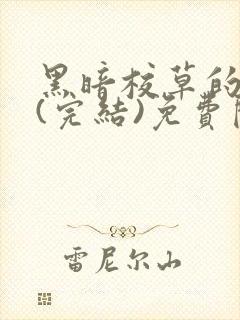 黑暗校草的
(完結)免費
雷尼尔山